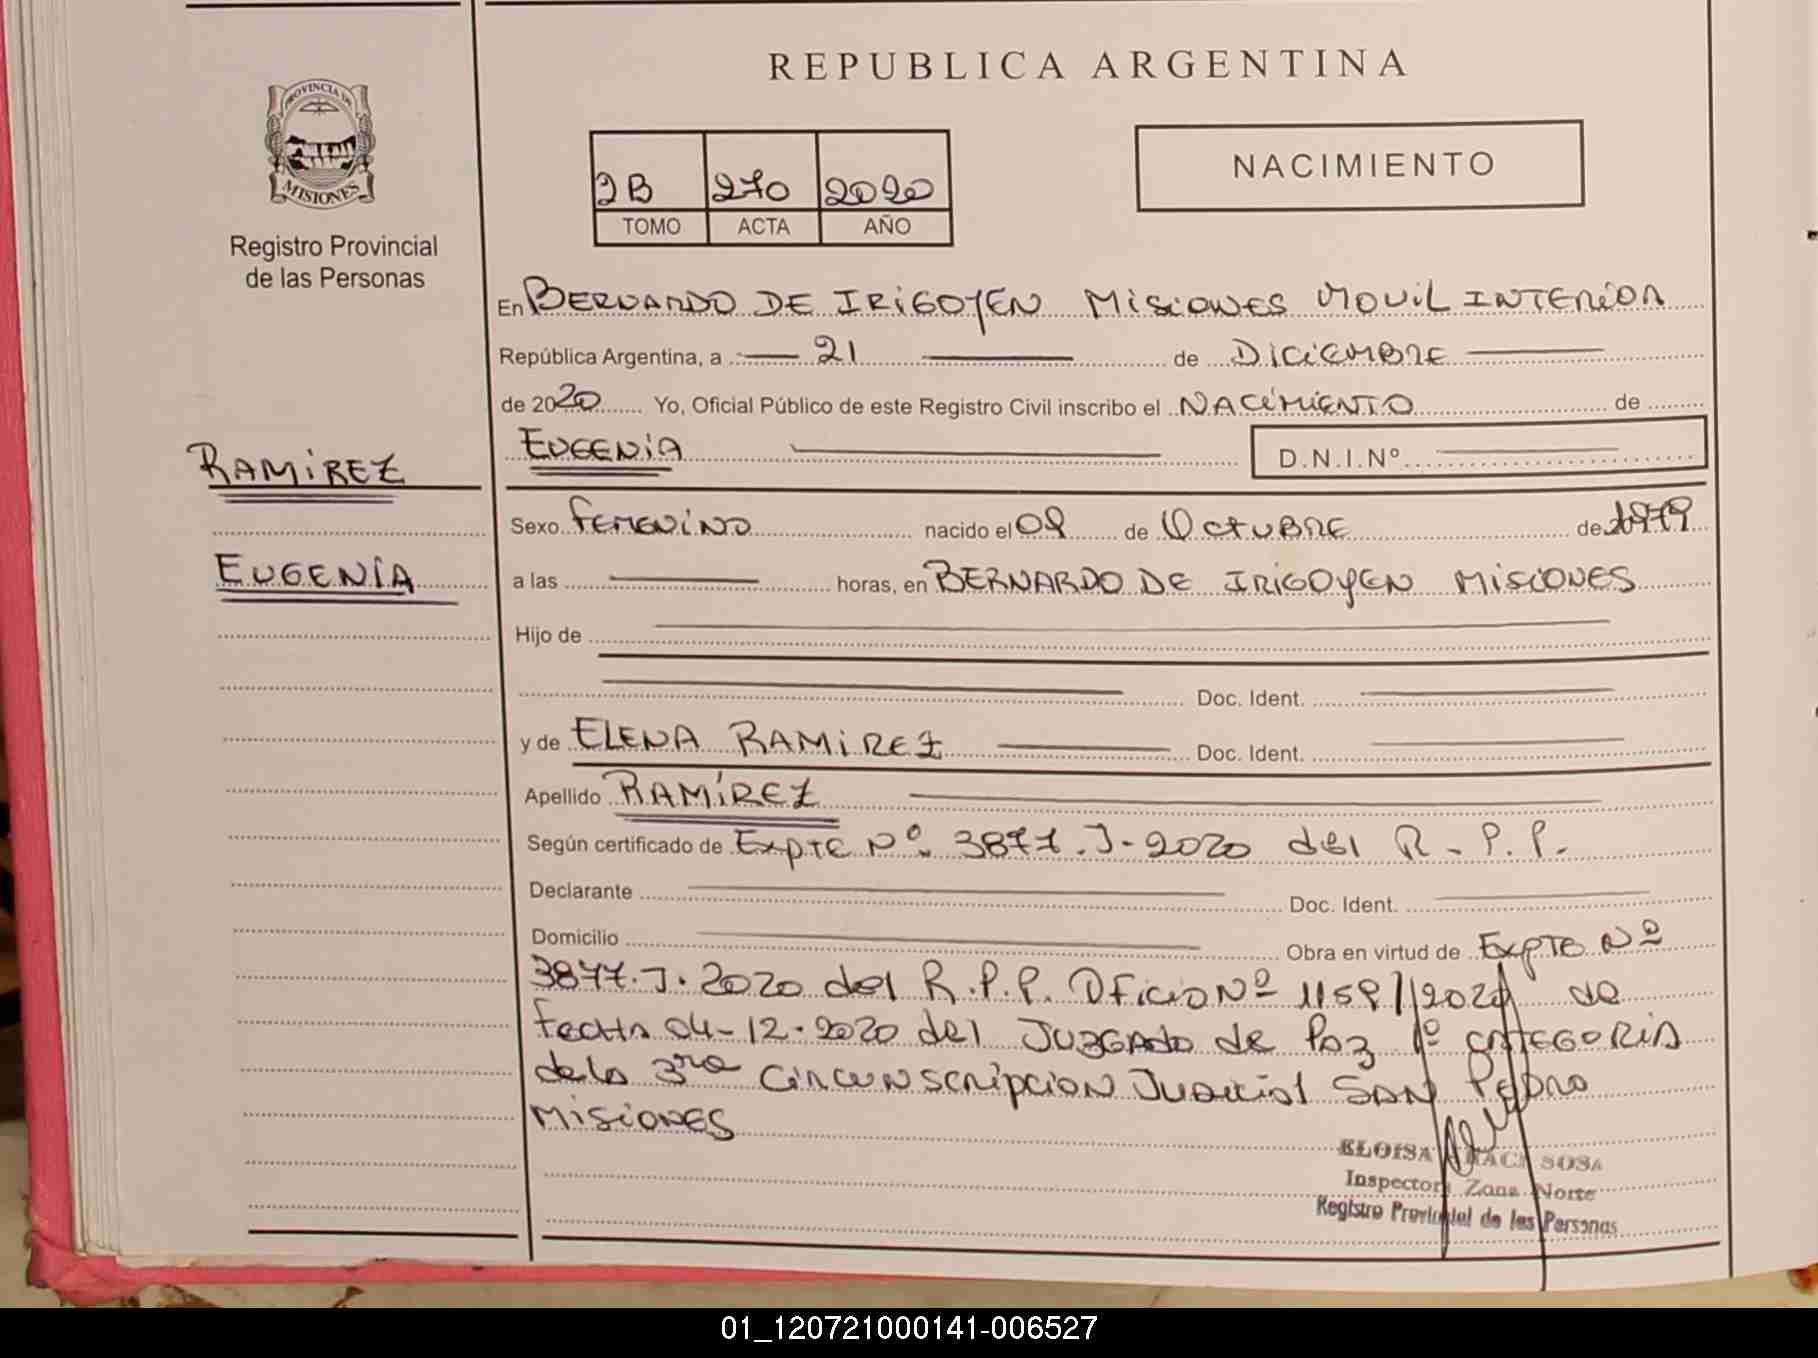 REPUBLICA ARGENTINA
PROVINCIA DE
MISIONES
Registro Provincial
de las Personas
2B 270 2020
TOMO ACTA AÑO
NACIMIENTO
En BERNARDO DE IRIGOYEN MISIONES MOVIL INTERIOR
República Argentina, a 21 de DICIEMBRE
de 2020 Yo, Oficial Público de este Registro Civil inscribo el NACIMIENTO de
RAMIREZ
EUGENIA
EUGENIA D.N.I.Nº
Sexo FEMENINO nacido el 09 de OCTUBRE de 1979
a las horas, en BERNARDO DE IRIGOYEN MISIONES
Hijo de
Doc. Ident.
y de ELENA RAMIREZ Doc. Ident.
Apellido RAMÍREZ
Según certificado de EXPTE Nº 3877.J-2020 del R.P.P.
Declarante Doc. Ident.
Domicilio Obra en virtud de EXPTE Nº
3877.J.2020 del R.P.P. Oficio Nº 1159/2020 de
fecha 04-12-2020 del JUZGADO de Paz 1º CATEGORIA
dela 3ra Circunscripcion Judicial SAN Pedro
MISIONES
ELOISA ARACI SOSA
Inspectora Zona Norte
Registro Provincial de las Personas
01_120721000141-006527